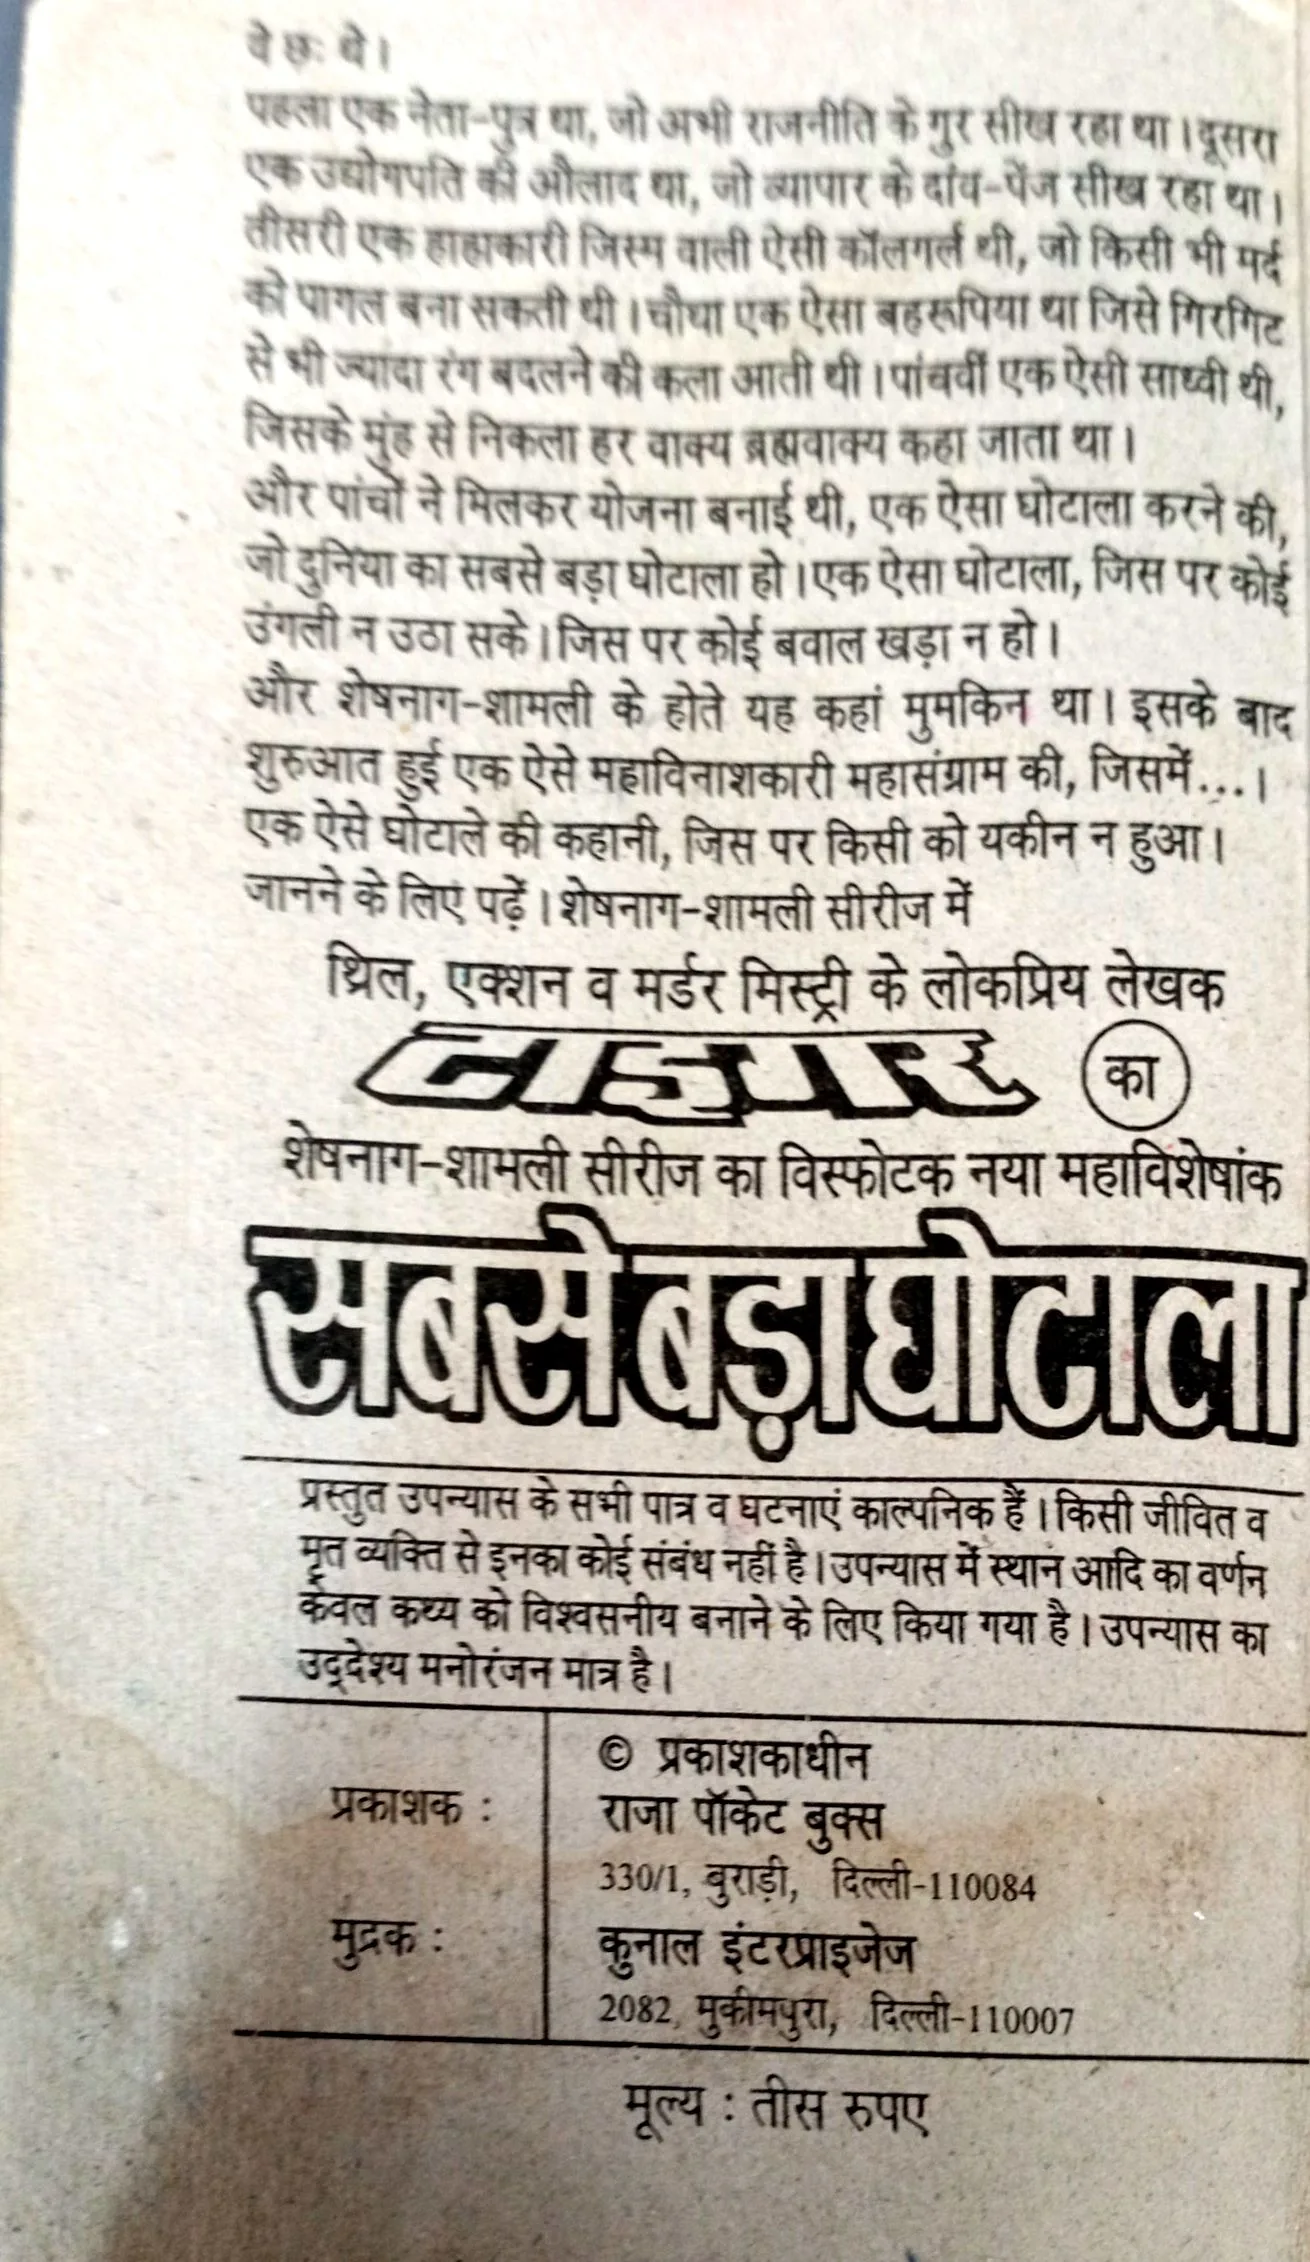 वे छः थे।
पहला एक नेता-पुत्र था, जो अभी राजनीति के गुर सीख रहा था। दूसरा
एक उद्योगपति की औलाद था, जो व्यापार के दांव-पेंज सीख रहा था।
तीसरी एक हाहाकारी जिस्म वाली ऐसी कॉलगर्ल थी, जो किसी भी मर्द
को पागल बना सकती थी। चौथा एक ऐसा बहरूपिया था जिसे गिरगिट
से भी ज्यादा रंग बदलने की कला आती थी। पांचवीं एक ऐसी साध्वी थी,
जिसके मुंह से निकला हर वाक्य ब्रह्मवाक्य कहा जाता था।
और पांचों ने मिलकर योजना बनाई थी, एक ऐसा घोटाला करने की,
जो दुनिया का सबसे बड़ा घोटाला हो। एक ऐसा घोटाला, जिस पर कोई
उंगली न उठा सके। जिस पर कोई बवाल खड़ा न हो।
और शेषनाग-शामली के होते यह कहां मुमकिन था। इसके बाद
शुरुआत हुई एक ऐसे महाविनाशकारी महासंग्राम की, जिसमें...।
एक ऐसे घोटाले की कहानी, जिस पर किसी को यकीन न हुआ।
जानने के लिए पढ़ें। शेषनाग-शामली सीरीज में
थ्रिल, एक्शन व मर्डर मिस्ट्री के लोकप्रिय लेखक
टाइगर का
शेषनाग-शामली सीरीज का विस्फोटक नया महाविशेषांक
सबसे बड़ा घोटाला
प्रस्तुत उपन्यास के सभी पात्र व घटनाएं काल्पनिक हैं। किसी जीवित व
मृत व्यक्ति से इनका कोई संबंध नहीं है। उपन्यास में स्थान आदि का वर्णन
केवल कथ्य को विश्वसनीय बनाने के लिए किया गया है। उपन्यास का
उद्देश्य मनोरंजन मात्र है।
© प्रकाशकाधीन
प्रकाशक : राजा पॉकेट बुक्स
330/1, बुराड़ी, दिल्ली-110084
मुद्रक : कुनाल इंटरप्राइजेज
2082, मुकीमपुरा, दिल्ली-110007
मूल्य : तीस रुपए